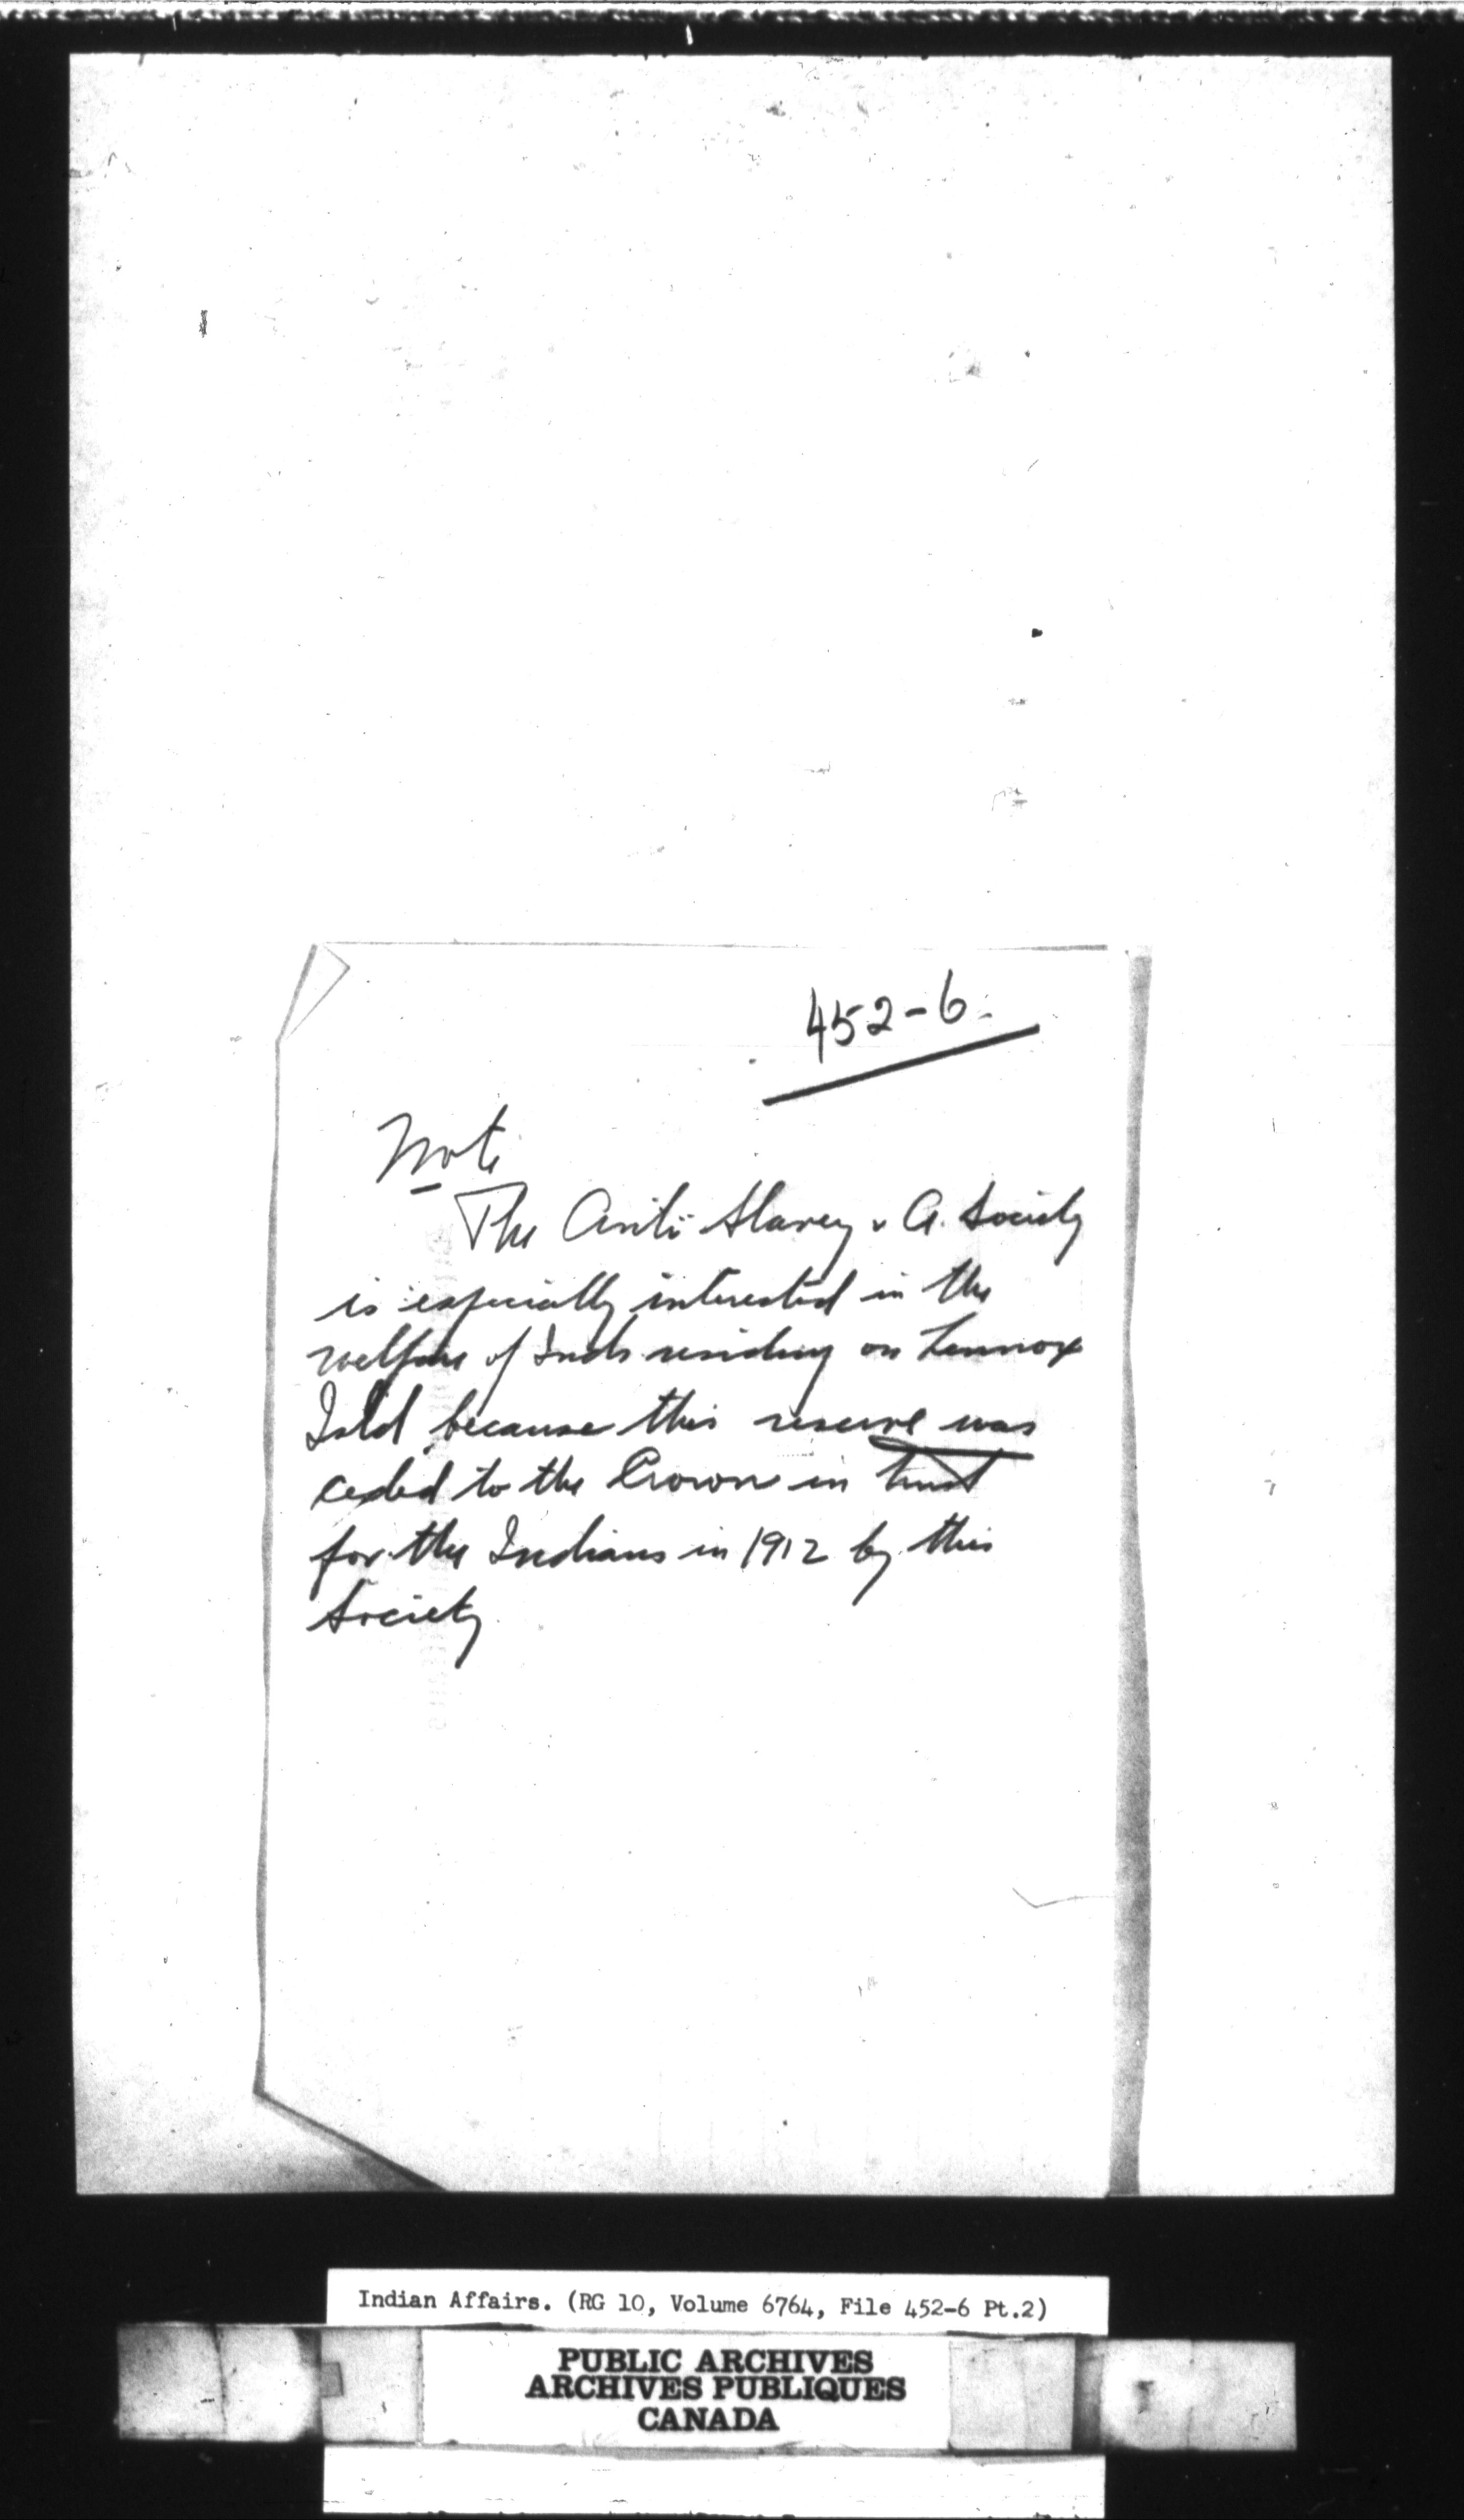 452-6.
Note
The Anti Slavery & A. Society
is especially interested in the
welfare of Inds residing on Lennox
Isld because this reserve was
ceded to the Crown in trust
for the Indians in 1912 by this
Society
Indian Affairs. (RG 10, Volume 6764, File 452-6 Pt.2)
PUBLIC ARCHIVES
ARCHIVES PUBLIQUES
CANADA